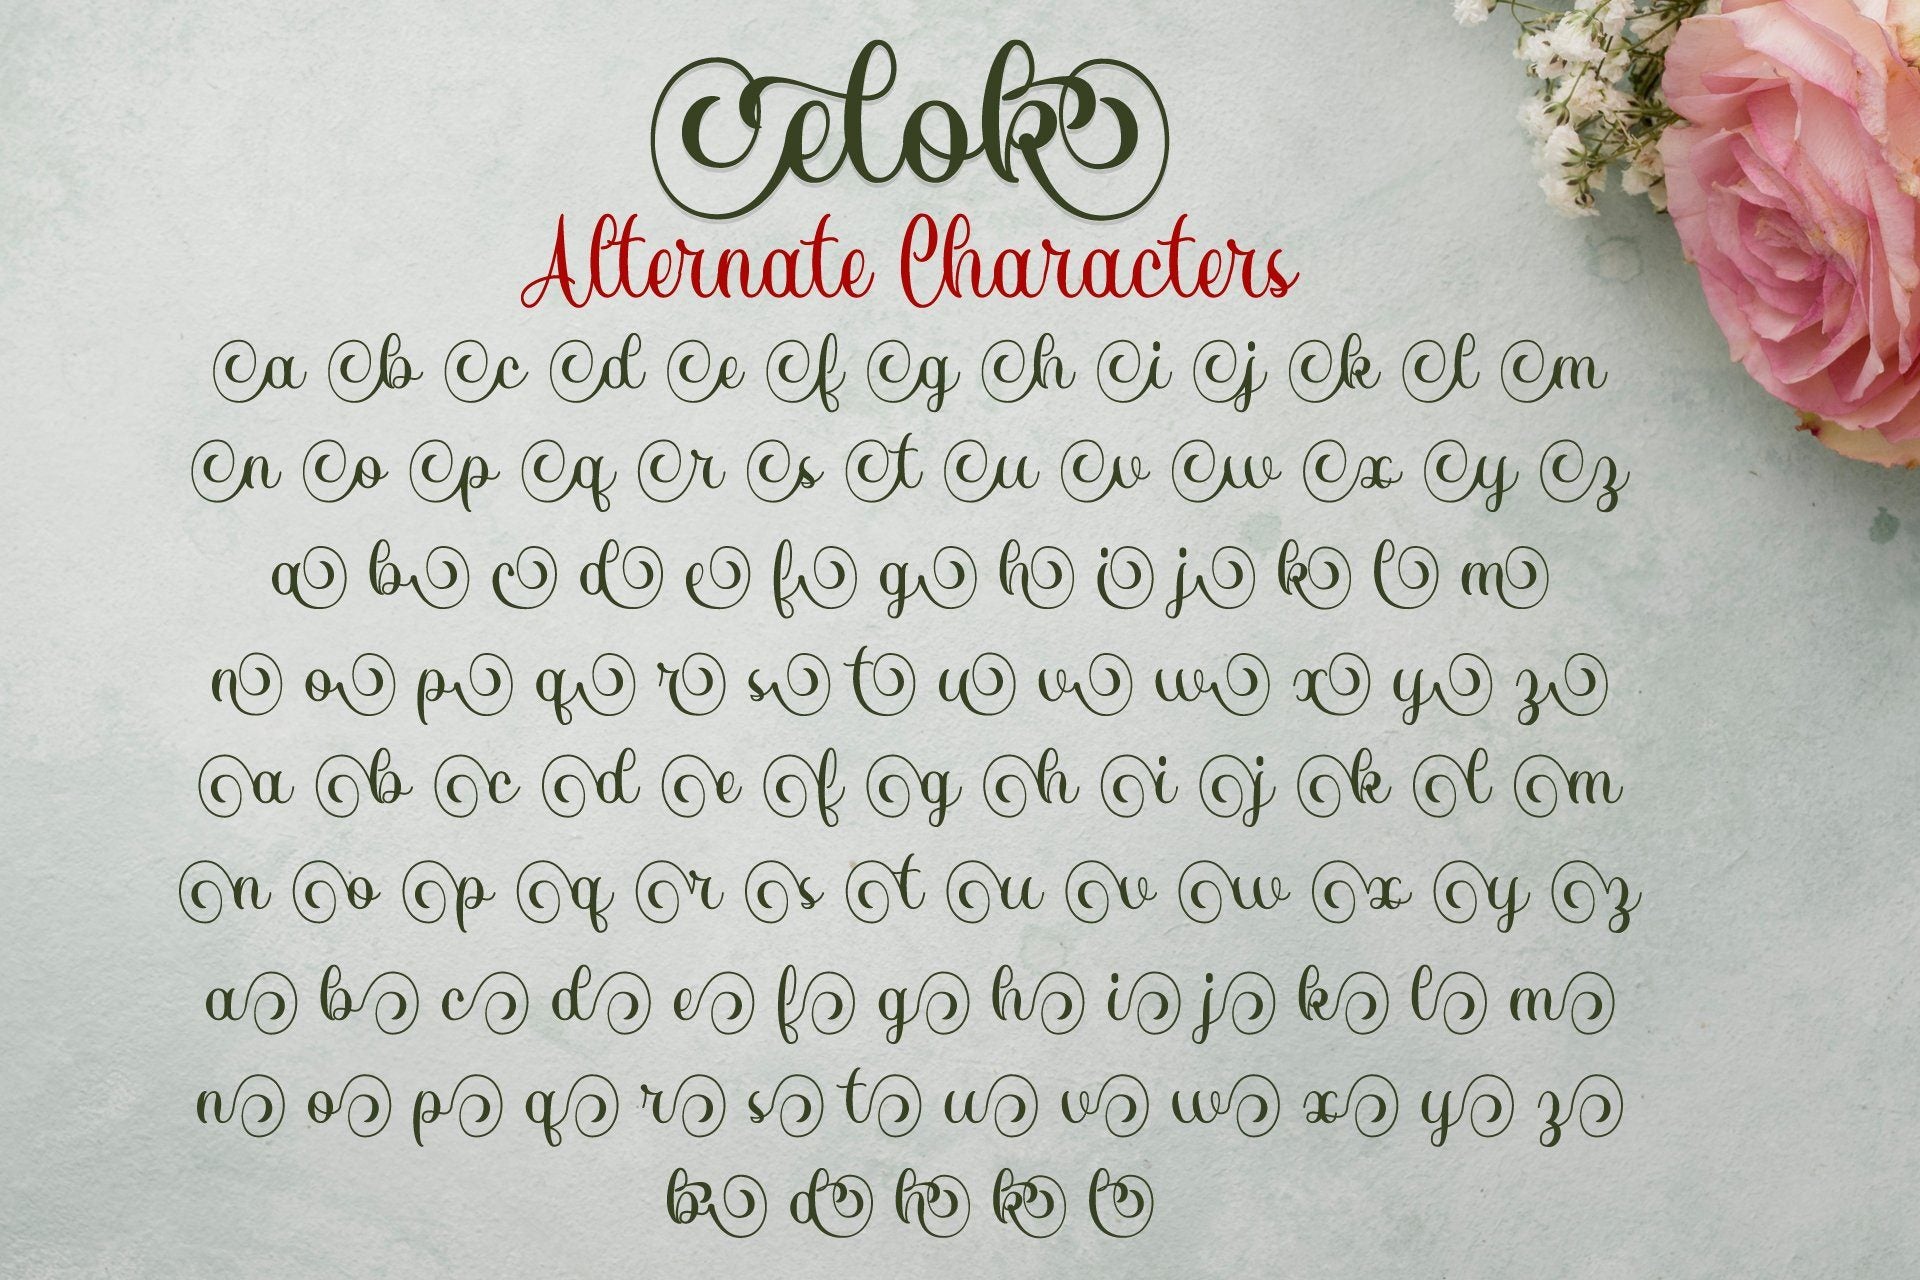 elok
Alternate Characters
a b c d e f g h i j k l m
n o p q r s t u v w x y z
a b c d e f g h i j k l m
n o p q r s t u v w x y z
a b c d e f g h i j k l m
n o p q r s t u v w x y z
a b c d e f g h i j k l m
n o p q r s t u v w x y z
b d h k l